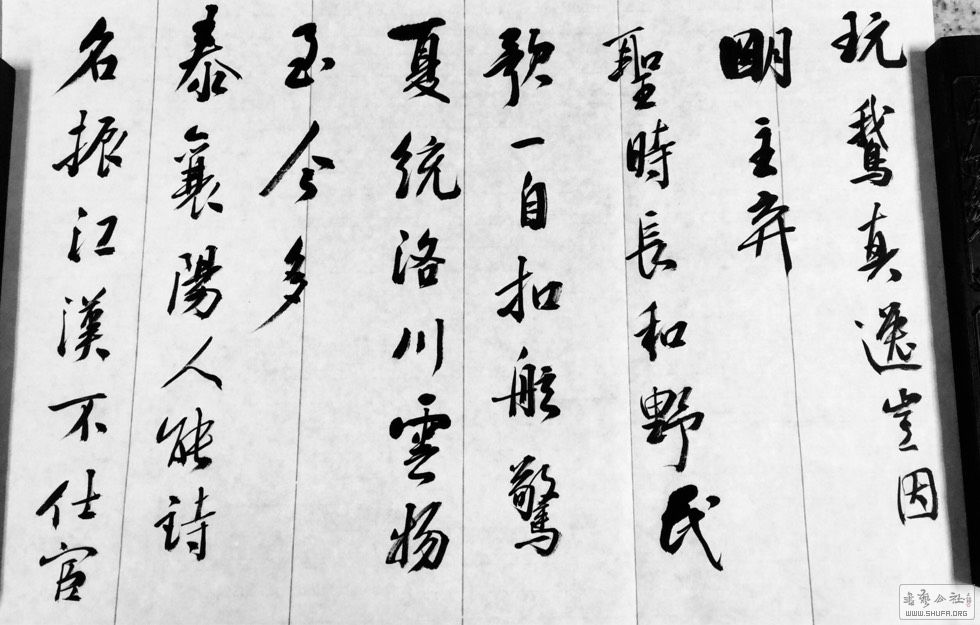 玩鵞真逸豈因
明主弃
聖時長和野民
歌一自扣舷驚
夏統洛川雲物
至今多
泰襄陽人能詩
名振江漢不仕宦
書藝公社
WWW.SHUFA.ORG